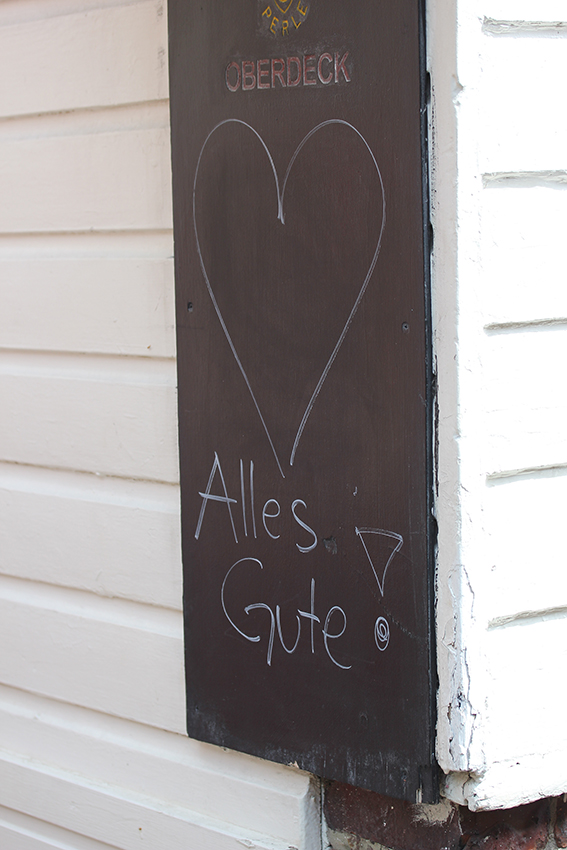 PERLE
OBERDECK
Alles
Gute!